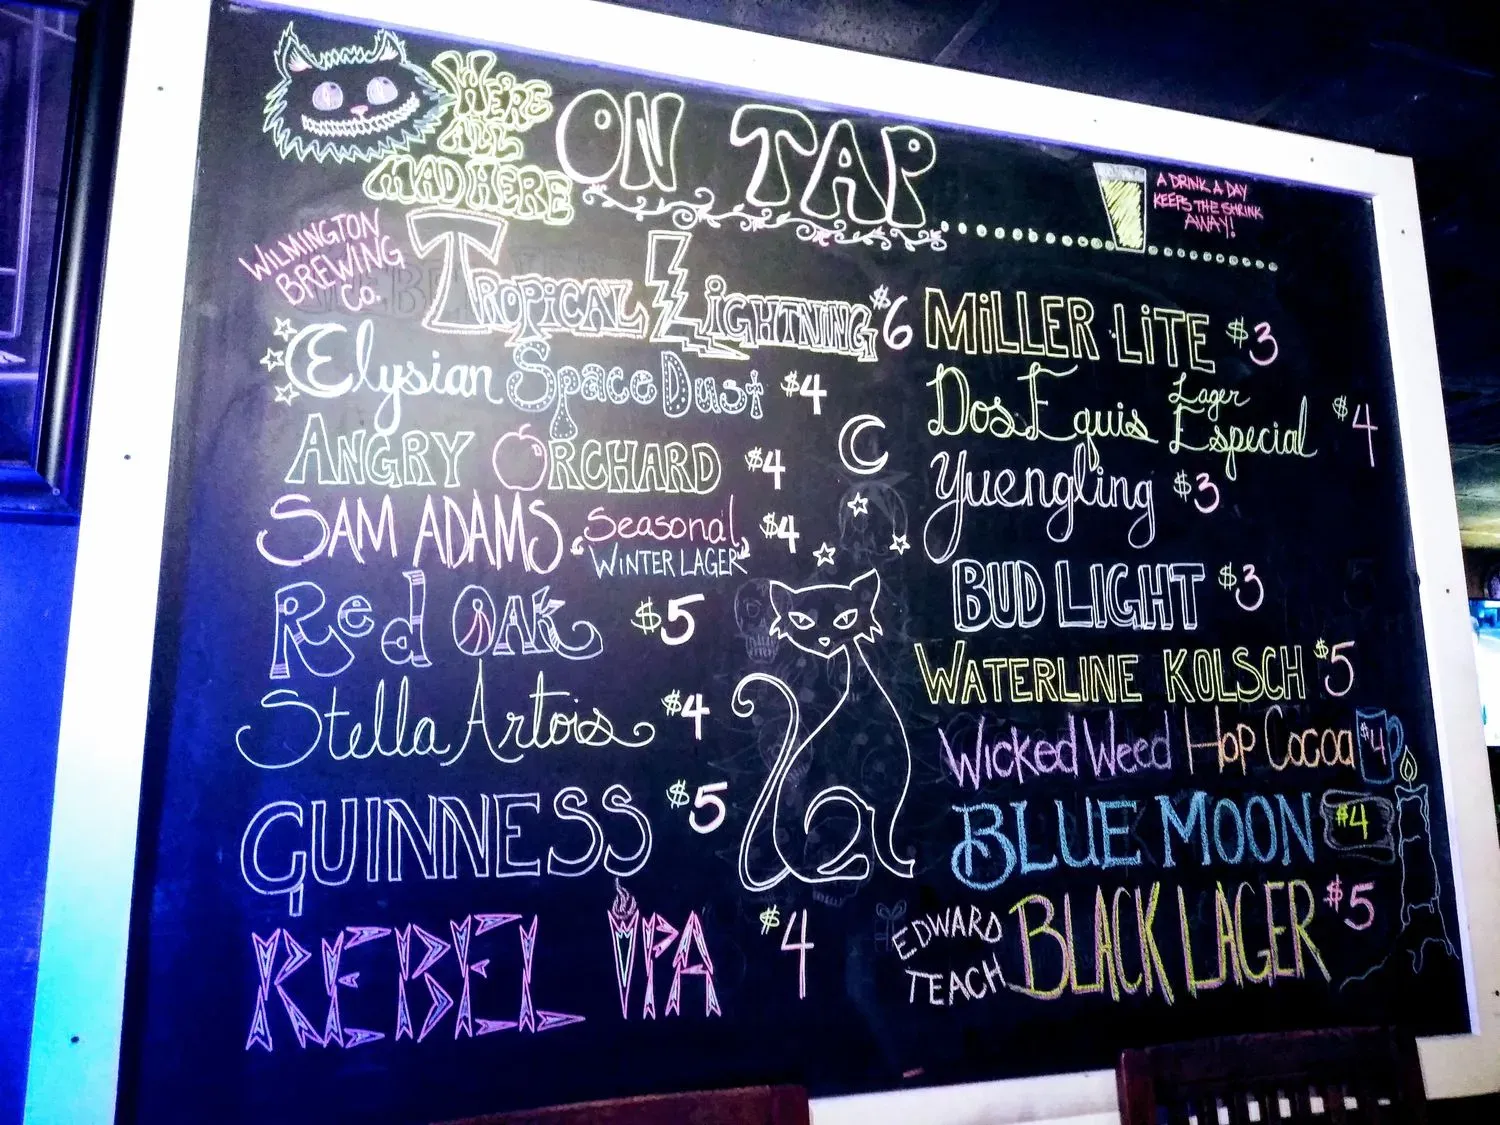 Here
All
Mad Here
ON TAP
A DRINK A DAY
KEEPS THE SHRINK
AWAY!
WILMINGTON
BREWING
Co.
TROPICAL LIGHTNING $6
Elysian Space Dust $4
ANGRY ORCHARD $4
SAM ADAMS Seasonal $4
WINTER LAGER
Red OAK $5
Stella Artois $4
GUINNESS $5
REBEL IPA $4
MiLLER LiTE $3
Dos Equis Lager Especial $4
Yuengling $3
BUD LIGHT $3
WATERLINE KOLSCH $5
Wicked Weed Hop Cocoa $4
BLUE MOON $4
EDWARD
TEACH
BLACK LAGER $5